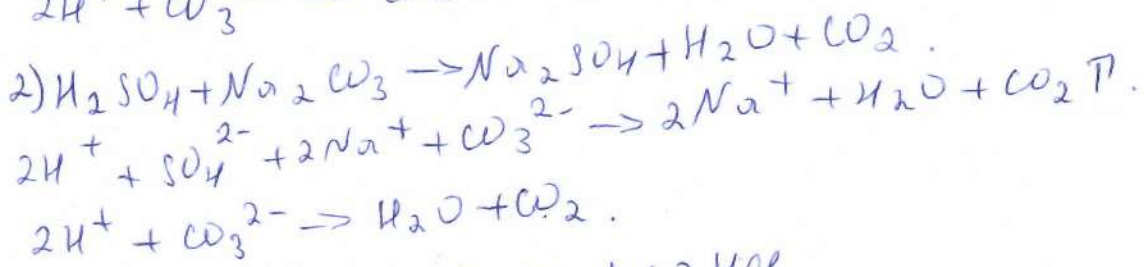 2H⁺ + CO₃
2) H₂SO₄ + Na₂CO₃ → Na₂SO₄ + H₂O + CO₂.
2H⁺ + SO₄²⁻ + 2Na⁺ + CO₃²⁻ → 2Na⁺ + H₂O + CO₂↑.
2H⁺ + CO₃²⁻ → H₂O + CO₂.